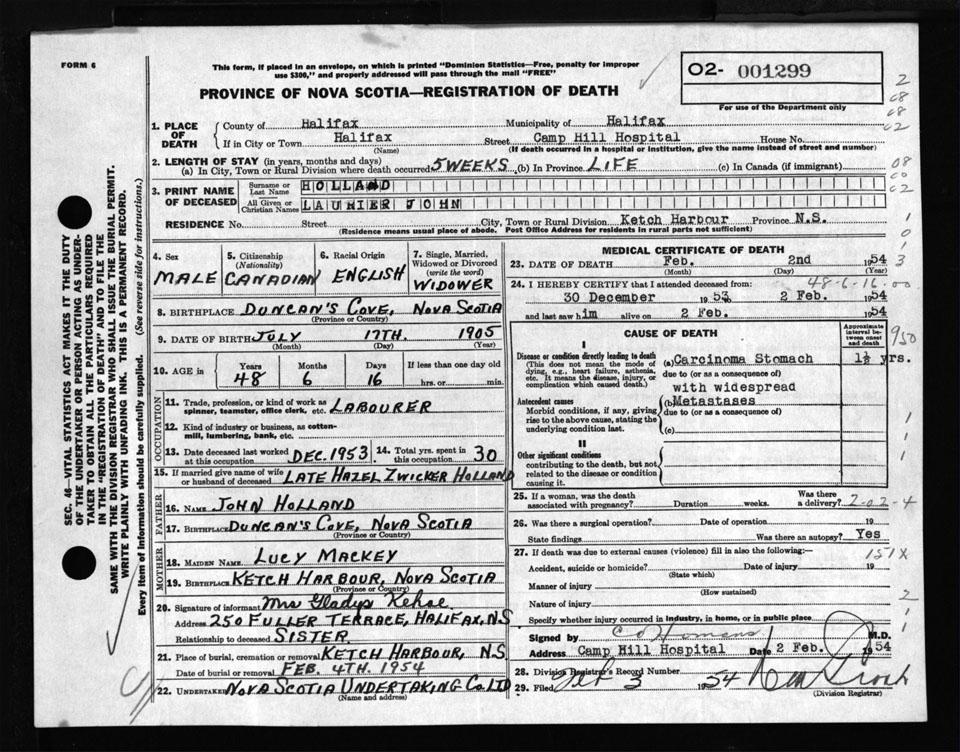 FORM 6
This form, if placed in an envelope, on which is printed "Dominion Statistics—Free, penalty for improper
use $300," and properly addressed will pass through the mail "FREE"
PROVINCE OF NOVA SCOTIA—REGISTRATION OF DEATH
O2- 001299
For use of the Department only
1. PLACE OF DEATH
County of Halifax Municipality of Halifax
If in City or Town Halifax Street Camp Hill Hospital House No.
(Name) (If death occurred in a hospital or institution, give the name instead of street and number)
2. LENGTH OF STAY (in years, months and days)
(a) In City, Town or Rural Division where death occurred 5 WEEKS (b) In Province LIFE (c) In Canada (if immigrant)
3. PRINT NAME OF DECEASED
Surname or Last Name HOLLAND
All Given or Christian Names LAURIER JOHN
RESIDENCE No. Street City, Town or Rural Division Ketch Harbour Province N.S.
(Residence means usual place of abode. Post Office Address for residents in rural parts not sufficient)
4. Sex MALE
5. Citizenship (Nationality) CANADIAN
6. Racial Origin ENGLISH
7. Single, Married, Widowed or Divorced (write the word) WIDOWER
8. BIRTHPLACE DUNCAN'S COVE, NOVA SCOTIA
(Province or Country)
9. DATE OF BIRTH JULY 17TH. 1905
(Month) (Day) (Year)
10. AGE in Years 48 Months 6 Days 16 If less than one day old hrs. or min.
OCCUPATION
11. Trade, profession, or kind of work as spinner, teamster, office clerk, etc. LABOURER
12. Kind of industry or business, as cotton-mill, lumbering, bank, etc.
13. Date deceased last worked at this occupation DEC. 1953
14. Total yrs. spent in this occupation 30
15. If married give name of wife or husband of deceased LATE HAZEL ZWICKER HOLLAND
FATHER
16. NAME JOHN HOLLAND
17. BIRTHPLACE DUNCAN'S COVE, NOVA SCOTIA
(Province or Country)
MOTHER
18. MAIDEN NAME LUCY MACKEY
19. BIRTHPLACE KETCH HARBOUR, NOVA SCOTIA
(Province or Country)
20. Signature of informant Mrs Gladys Kehoe
Address 250 FULLER TERRACE, HALIFAX, N.S
Relationship to deceased SISTER
21. Place of burial, cremation or removal KETCH HARBOUR, N.S
Date of burial or removal FEB. 4TH. 1954
22. UNDERTAKER NOVA SCOTIA UNDERTAKING CO. LTD
(Name and address)
MEDICAL CERTIFICATE OF DEATH
23. DATE OF DEATH Feb. 2nd 1954
(Month) (Day)
48-6-16-00
24. I HEREBY CERTIFY that I attended deceased from:
30 December 1953 to 2 Feb. 1954
and last saw him alive on 2 Feb. 1954
CAUSE OF DEATH
Approximate interval between onset and death
I
Disease or condition directly leading to death
(This does not mean the mode of dying, e.g., heart failure, asthenia, etc. It means the disease, injury, or complication which caused death.)
(a) Carcinoma Stomach 1½ yrs.
due to (or as a consequence of)
with widespread
Antecedent causes
Morbid conditions, if any, giving rise to the above cause, stating the underlying condition last.
(b) Metastases
due to (or as a consequence of)
(c)
II
Other significant conditions
contributing to the death, but not related to the disease or condition causing it.
25. If a woman, was the death associated with pregnancy? Duration weeks. Was there a delivery? 2-02-4
26. Was there a surgical operation? Date of operation 19
State findings Was there an autopsy? Yes
27. If death was due to external causes (violence) fill in also the following:—
151X
Accident, suicide or homicide? Date of injury 19
(State which)
Manner of injury
(How sustained)
Nature of injury
Specify whether injury occurred in industry, in home, or in public place
Signed by M.D.
Address Camp Hill Hospital Date 2 Feb. 1954
28. Division Registrar's Record Number
29. Filed Feb 3 1954
(Division Registrar)
SEC. 46—VITAL STATISTICS ACT MAKES IT THE DUTY
OF THE UNDERTAKER OR PERSON ACTING AS UNDER-
TAKER TO OBTAIN ALL THE PARTICULARS REQUIRED
IN THE "REGISTRATION OF DEATH" AND TO FILE THE
SAME WITH THE DIVISION REGISTRAR WHO SHALL ISSUE THE BURIAL PERMIT.
WRITE PLAINLY WITH UNFADING INK. THIS IS A PERMANENT RECORD.
Every item of information should be carefully supplied. (See reverse side for instructions.)
2
08
08
02
08
00
02
1
0
1
3
950
1
1
1
2
1